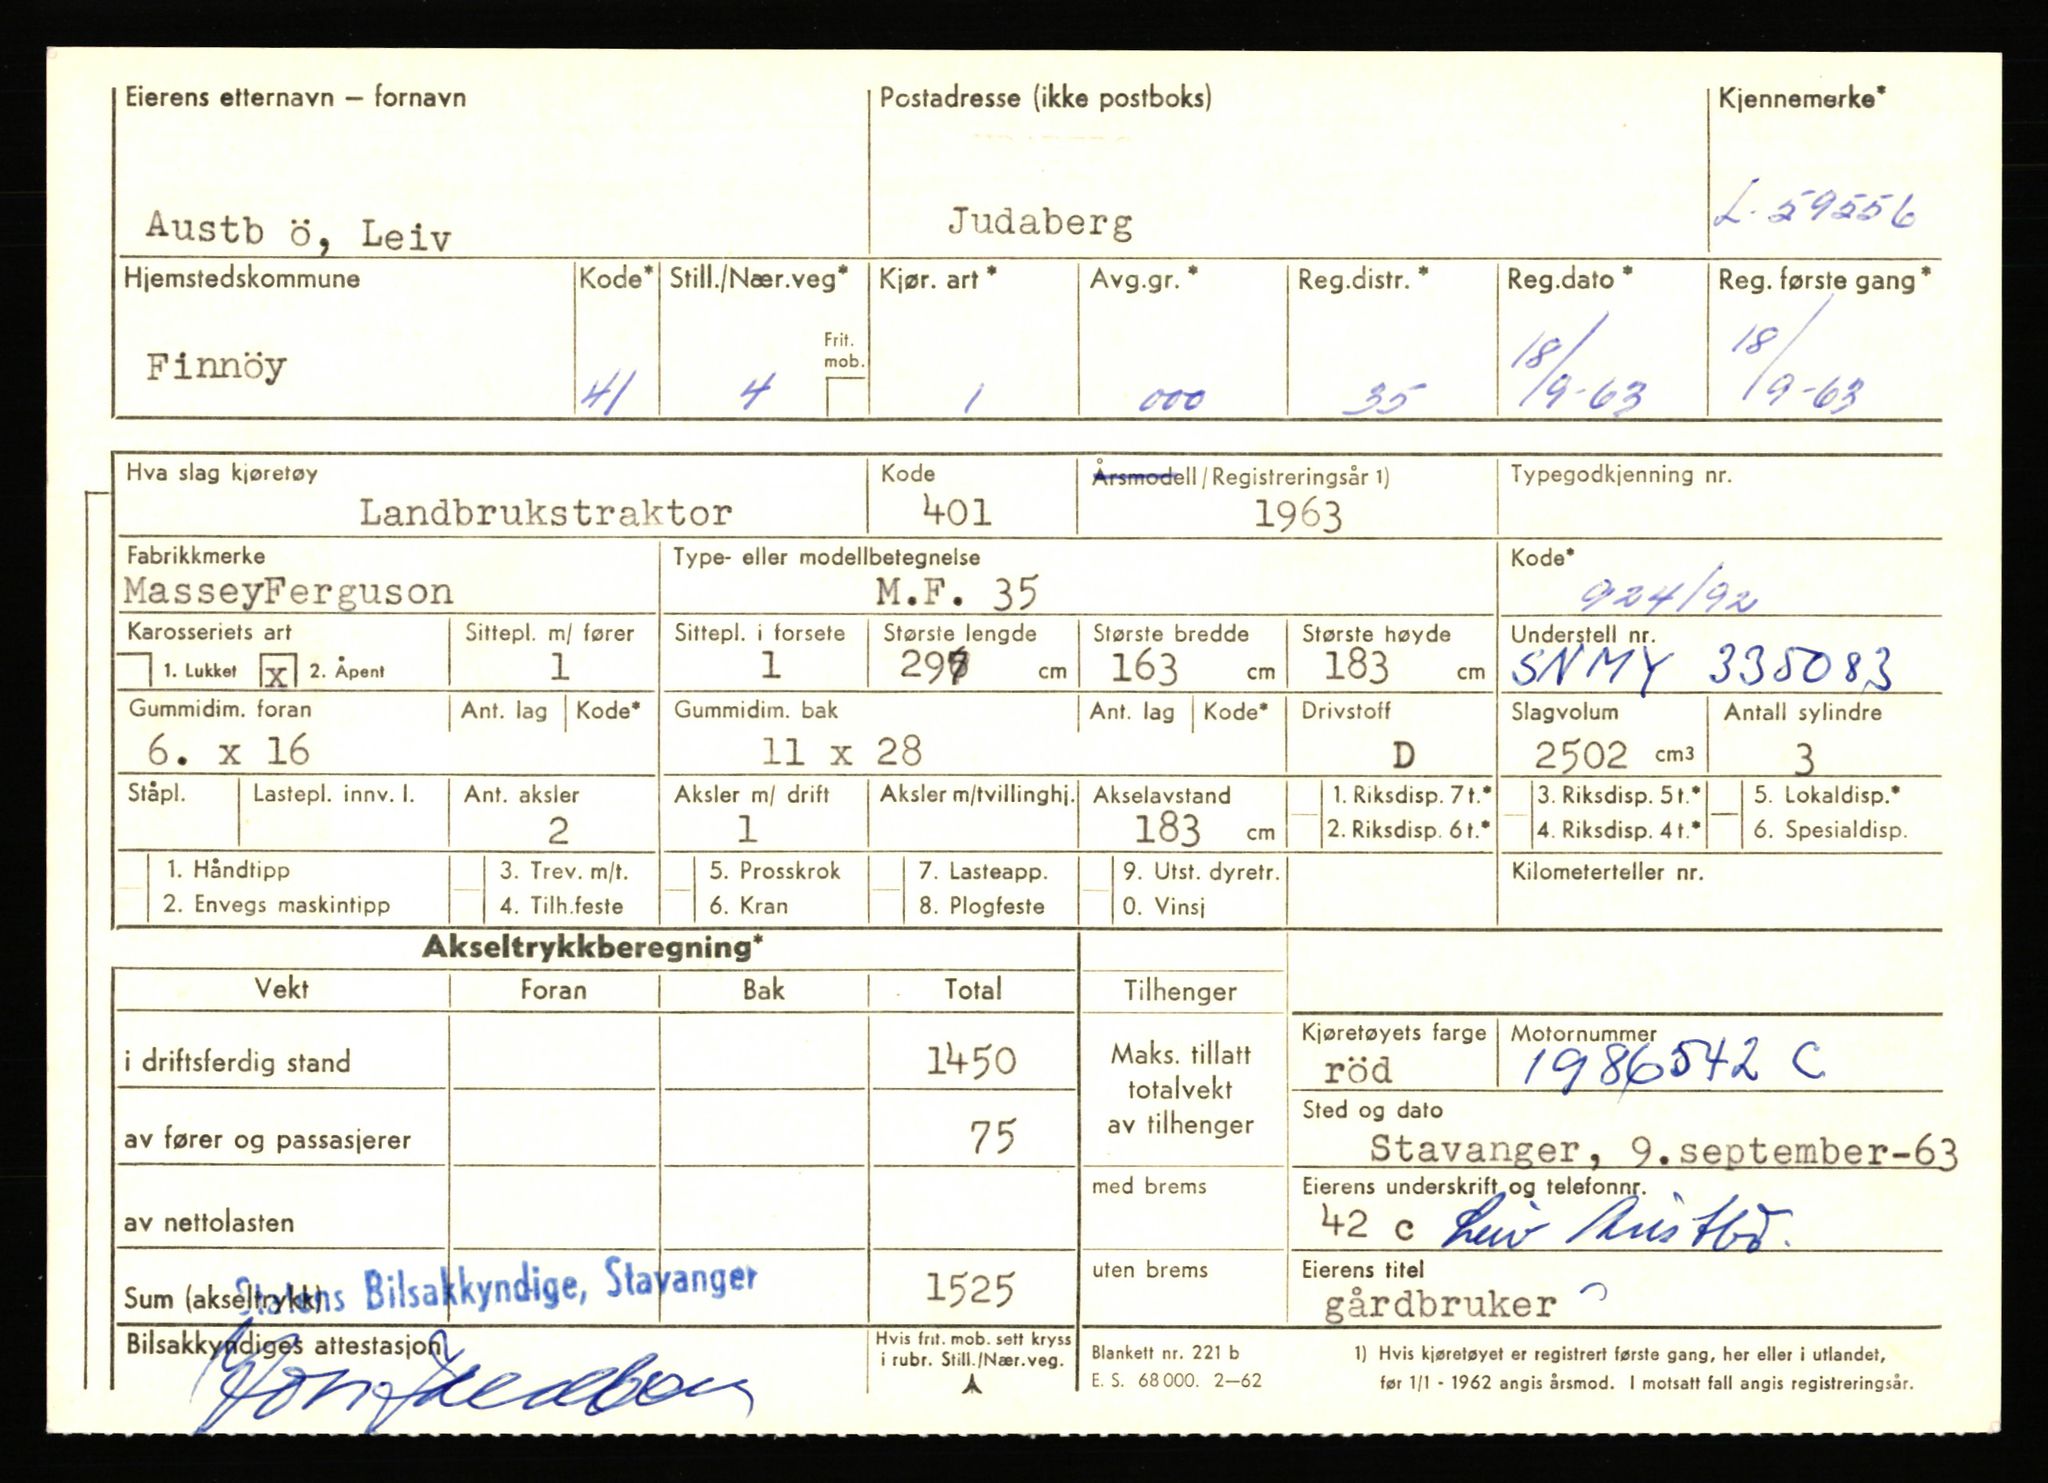 Eierens etternavn – fornavn Postadresse (ikke postboks) Kjennemerke*
Austb ö, Leiv Judaberg L-59556
Hjemstedskommune Kode* Still./Nær.veg* Kjør. art* Avg.gr.* Reg.distr.* Reg.dato* Reg. første gang*
Frit.
mob.
Finnöy 41 4 1 000 35 18/9-63 18/9-63
Hva slag kjøretøy Kode Årsmodell/Registreringsår 1) Typegodkjenning nr.
Landbrukstraktor 401 1963
Fabrikkmerke Type- eller modellbetegnelse Kode*
MasseyFerguson M.F. 35 924/92
Karosseriets art Sittepl. m/ fører Sittepl. i forsete Største lengde Største bredde Største høyde Understell nr.
1. Lukket x 2. Åpent 1 1 297 cm 163 cm 183 cm SNMY 335083
Gummidim. foran Ant. lag Kode* Gummidim. bak Ant. lag Kode* Drivstoff Slagvolum Antall sylindre
6. x 16 11 x 28 D 2502 cm3 3
Ståpl. Lastepl. innv. l. Ant. aksler Aksler m/ drift Aksler m/tvillinghj. Akselavstand 1. Riksdisp. 7 t.* 3. Riksdisp. 5 t.* 5. Lokaldisp.*
2 1 183 cm 2. Riksdisp. 6 t.* 4. Riksdisp. 4 t.* 6. Spesialdisp.
1. Håndtipp 3. Trev. m/t. 5. Prosskrok 7. Lasteapp. 9. Utst. dyretr. Kilometerteller nr.
2. Envegs maskintipp 4. Tilh.feste 6. Kran 8. Plogfeste 0. Vinsj
Akseltrykkberegning*
Vekt Foran Bak Total Tilhenger
Kjøretøyets farge Motornummer
i driftsferdig stand 1450 Maks. tillatt röd 1986542 C
totalvekt
Sted og dato
av fører og passasjerer 75 av tilhenger Stavanger, 9.september-63
med brems Eierens underskrift og telefonnr.
av nettolasten 42 c Leiv Austbø.
uten brems Eierens titel
Sum (akseltrykk) Statens Bilsakkyndige, Stavanger 1525 gårdbruker
Bilsakkyndiges attestasjon Hvis frit. mob. sett kryss
i rubr. Still./Nær.veg.
Blankett nr. 221 b 1) Hvis kjøretøyet er registrert første gang, her eller i utlandet,
E. S. 68 000. 2–62 før 1/1 - 1962 angis årsmod. I motsatt fall angis registreringsår.